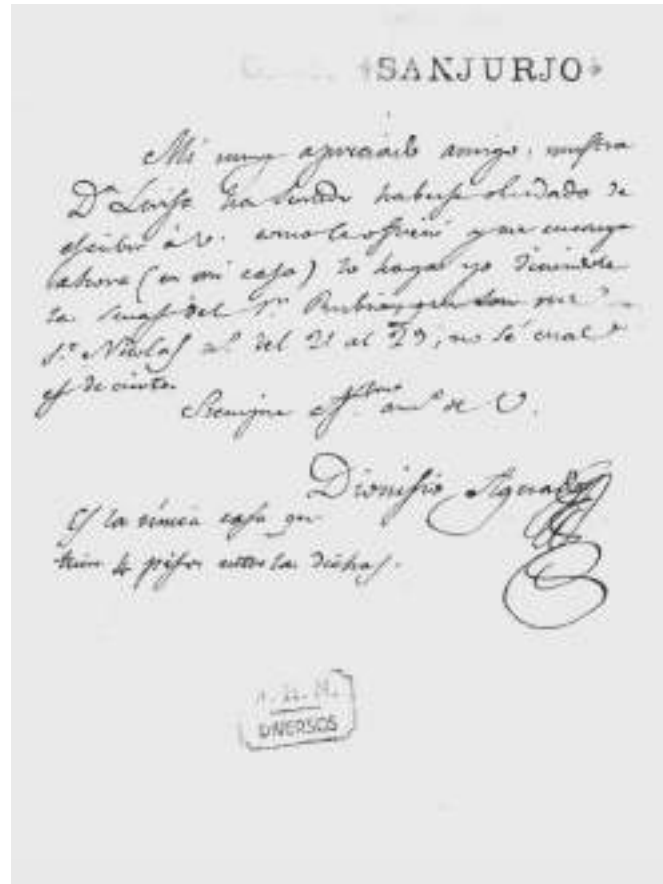 SANJURJO
Mi muy apreciado amigo: nuestra
Dª Luisa ha sentido haberse olvidado de
escribir á V. como le ofreció y me encarga
ahora (en mi casa) lo haga yo diciendole
las señas del Sr. Rubio, que son
Sn. Nicolas nº del 21 al 23, no sé cual
es de cierto.
Siempre afmo. amº de V.
Dionisio Aguado
Es la única casa que
tiene 4 pisos entre las dichas.
A.H.N.
DIVERSOS